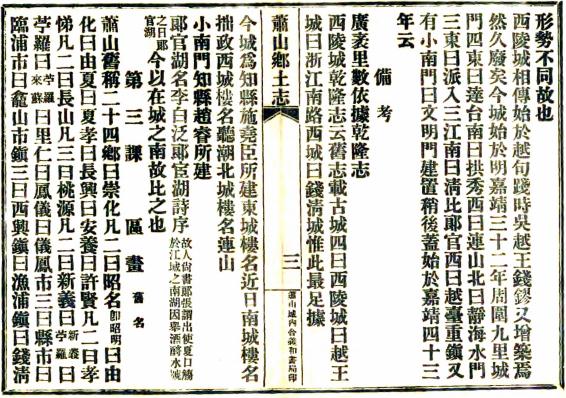 形勢不同故也
西陵城相傳始於越句踐時吳越王錢鏐又增築焉
然久廢矣今城始於明嘉靖三十二年周圍九里城
門四東曰達台南曰拱秀西曰連山北曰靜海水門
三東曰派入三江南曰清比郎官西曰越臺重鎮又
有小南門曰文明門建置稍後蓋始於嘉靖四十三
年云
備考
廣袤里數依據乾隆志
西陵城乾隆志云舊志載古城四曰西陵城曰越王
城曰浙江南路西城曰錢清城惟此最足據
蕭山鄉土志
三
蕭山城內合義和書局印
今城為知縣施堯臣所建東城樓名近日南城樓名
拙政西城樓名聽潮北城樓名連山
小南門知縣趙睿所建
郎官湖名李白泛郎官湖詩序故人尚書郎張謂出使夏口觴
於江城之南湖因舉酒酹水號
之曰郎
官湖今以在城之南故比之也
第三課 區畫 舊名
蕭山舊稱二十四鄉曰崇化凡二曰昭名卽昭明曰由
化曰由夏曰夏孝曰長興曰安養曰許賢凡二曰孝
悌凡二曰長山凡三曰桃源凡二曰新義曰新義
苧羅曰
苧羅曰苧羅
來蘇曰里仁曰鳳儀曰儀鳳市三曰縣市曰
臨浦市曰龕山市鎮三曰西興鎮曰漁浦鎮曰錢清